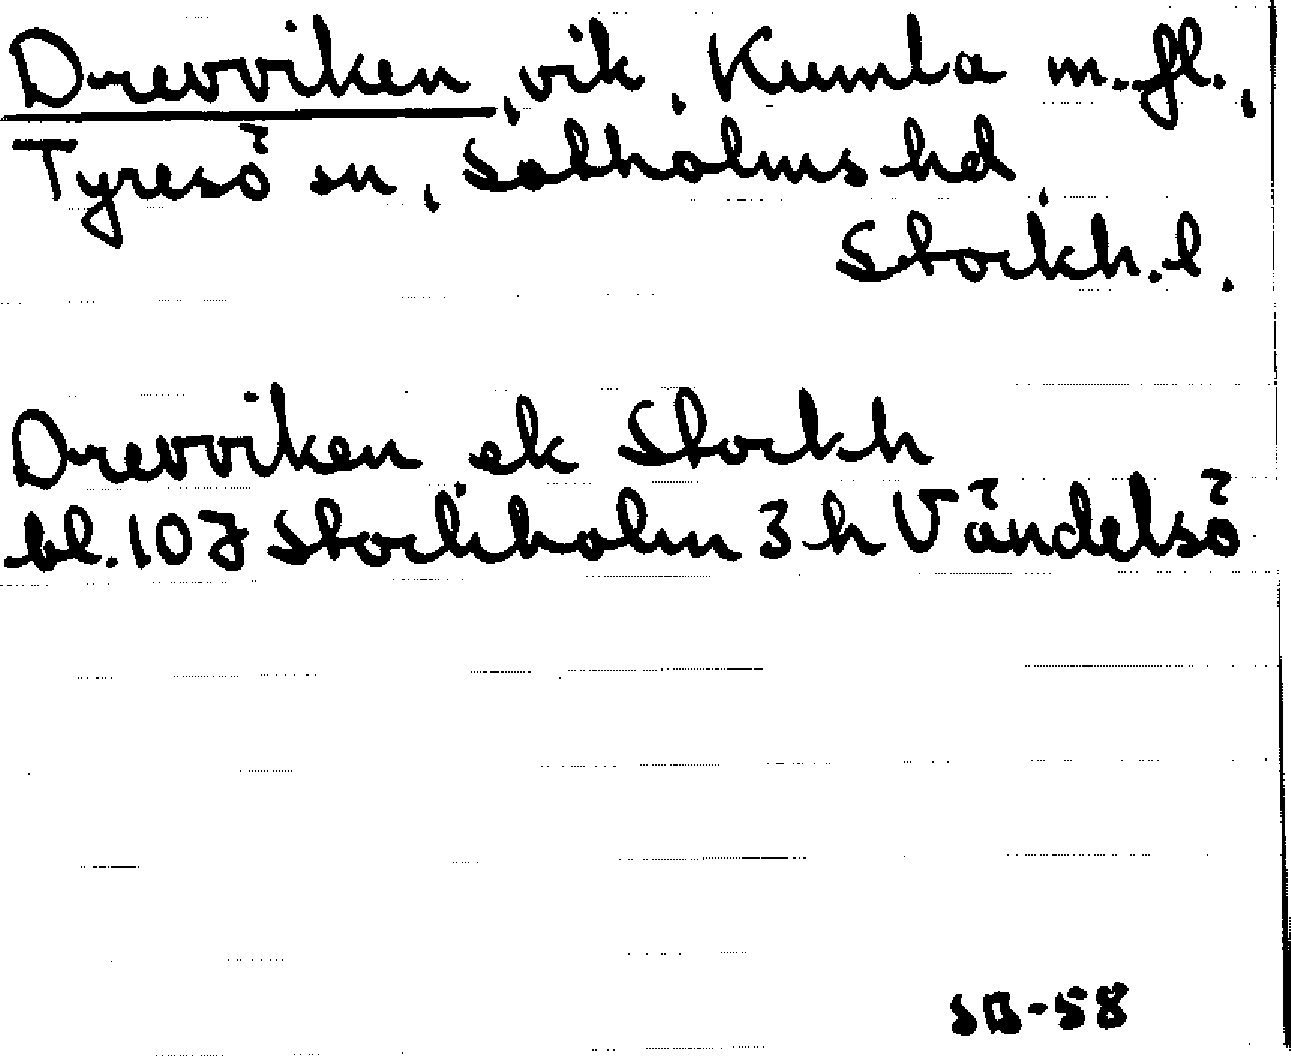 Drevviken, vik, Kumla m.fl.,
Tyresö sn, Sotholms hd,
Stockh. l.
Drevviken ek Stockh
bl. 10J Stockholm 3 h Vändelsö
SB-58